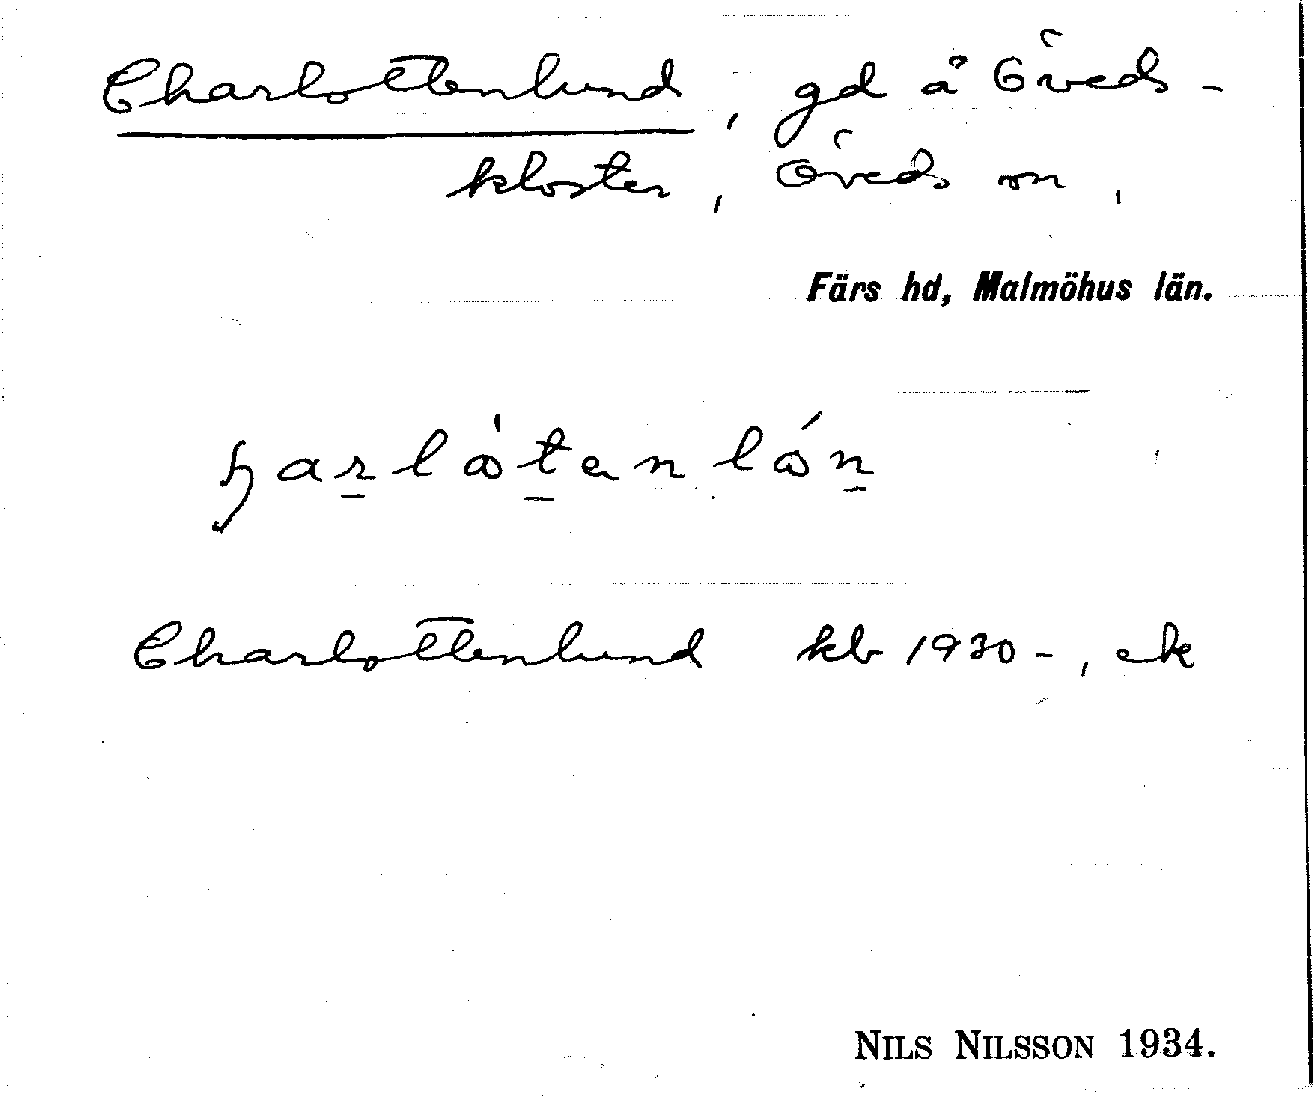 Charlottenlund, gd å Öveds-
kloster, Öveds sn,
Färs hd, Malmöhus län.
Charlottenlund kb 1930-, ek
NILS NILSSON 1934.